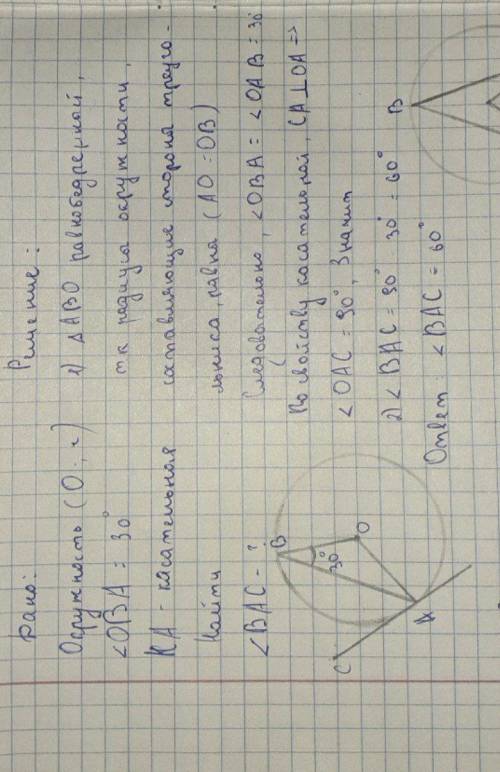 Дано:
Окружность (O;, r)
∠OBA = 30°
KA - касательная
Найти
∠BAC - ?
B
30°
O
C
A
Решение:
1) △ABO равнобедренной,
тк радиусы окружности,
составляющие стороны треуго-
льника, равна (AO = OB)
Следовательно, ∠OBA = ∠OAB = 30°
По свойству касательной, CA⊥OA =>
∠OAC = 90°, Значит
2) ∠BAC = 90° - 30° = 60°
Ответ: ∠BAC = 60°
B